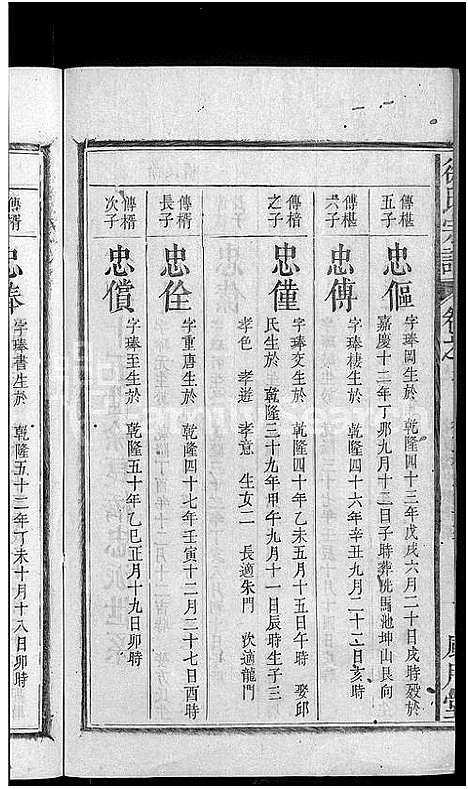 徐氏宗譜
卷之
傳椹
五子
忠傴
字瑧圓生於 乾隆四十三年戊戌六月二十日戌時歿於
嘉慶十二年丁卯九月十二日子時葬洗馬池坤山艮向
傳椹
六子
忠傳
字瑧棲生於 乾隆四十六年辛丑九月二十二日亥時
傳楮
之子
忠僅
字瑧交生於 乾隆四十年乙未五月十五日午時 娶邱
氏生於 乾隆三十九年甲午九月十一日辰時生子三
孝色 孝遊 孝意 生女二 長適朱門 次適龍門
傳楈
長子
忠佺
字重唐生於 乾隆四十七年壬寅十二月二十七日酉時
傳楈
次子
忠償
字瑧至生於 乾隆五十年乙巳正月十九日卯時
傳楈
忠俸
字瑧書生於 乾隆五十二年丁未十月十八日卯時